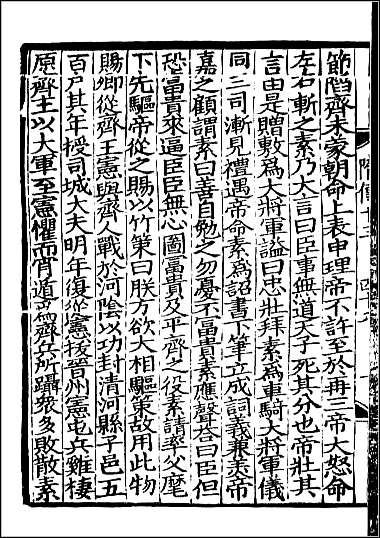 節陷齊未蒙朝命上表申理帝不許至於再三帝大怒命
左右斬之素乃大言曰臣事無道天子死其分也帝壯其
言由是贈敷為大將軍謚曰忠壯拜素為車騎大將軍儀
同三司漸見禮遇帝命素為詔書下筆立成詞義兼美帝
嘉之顧謂素曰善自勉之勿憂不富貴素應聲荅曰臣但
恐富貴來逼臣臣無心圖富貴及平齊之役素請率父麾
下先驅帝從之賜以竹策曰朕方欲大相驅策故用此物
賜卿從齊王憲與齊人戰於河陰以功封清河縣子邑五
百戶其年授司城大夫明年復從憲拔晉州憲屯兵雞棲
原齊主以大軍至憲懼而宵遁為齊兵所躡衆多敗散素
隋傳十三